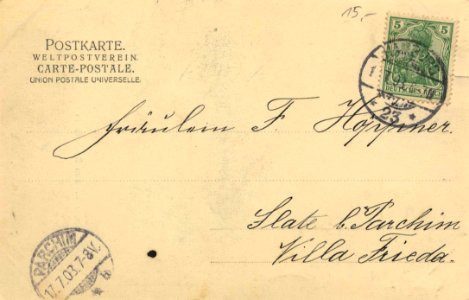 15,-
POSTKARTE.
WELTPOSTVEREIN.
CARTE-POSTALE.
UNION POSTALE UNIVERSELLE.
5 5
23
Fräulein F. Höppner.
Slate b. Parchim
Villa Frieda.
PARCHIM
17.7.03.7-8V.
* b